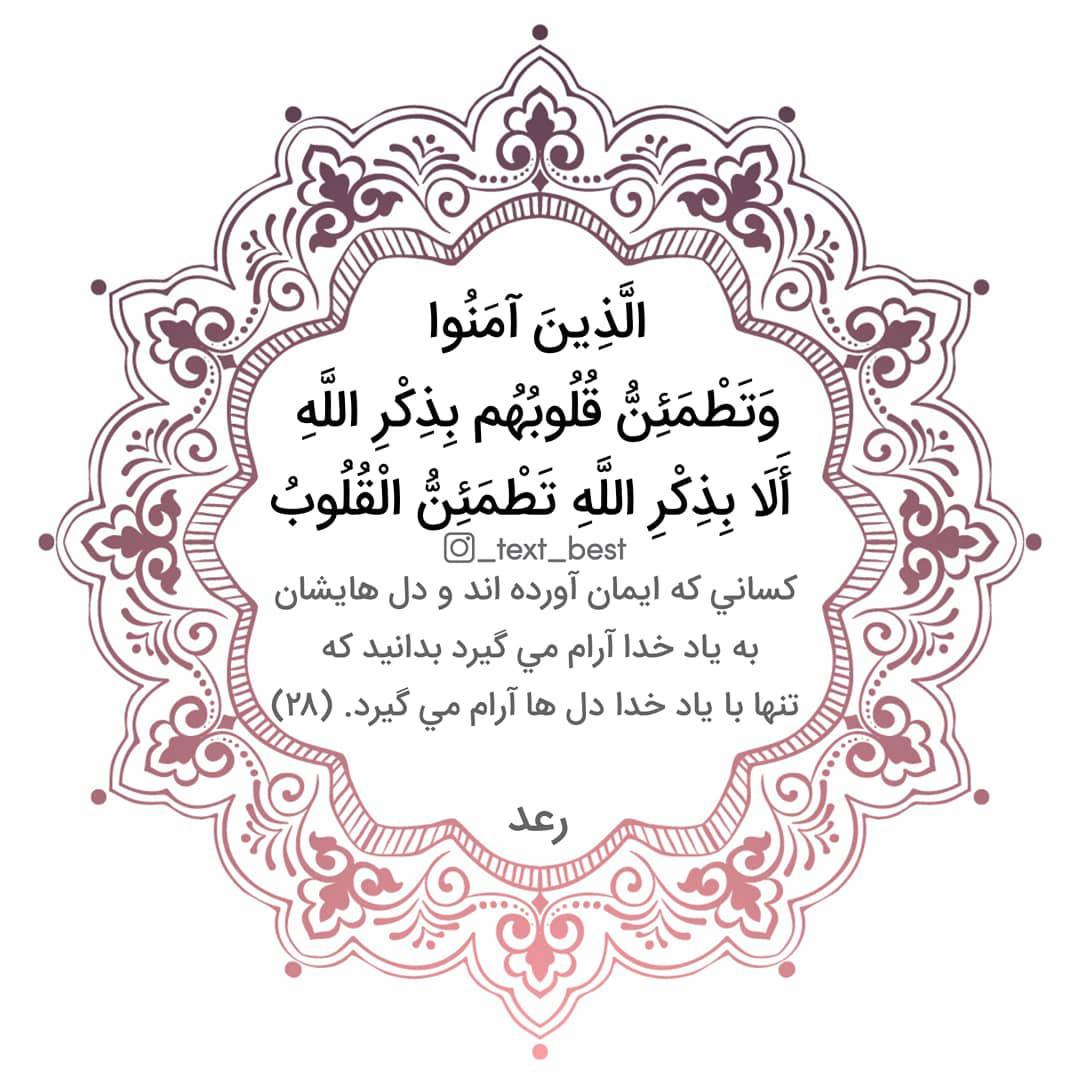 الَّذِينَ آمَنُوا
وَتَطْمَئِنُّ قُلُوبُهُم بِذِكْرِ اللَّهِ
أَلَا بِذِكْرِ اللَّهِ تَطْمَئِنُّ الْقُلُوبُ
_text_best
كساني كه ايمان آورده اند و دل هايشان
به ياد خدا آرام مي گيرد بدانيد كه
تنها با ياد خدا دل ها آرام مي گيرد. (٢٨)
رعد